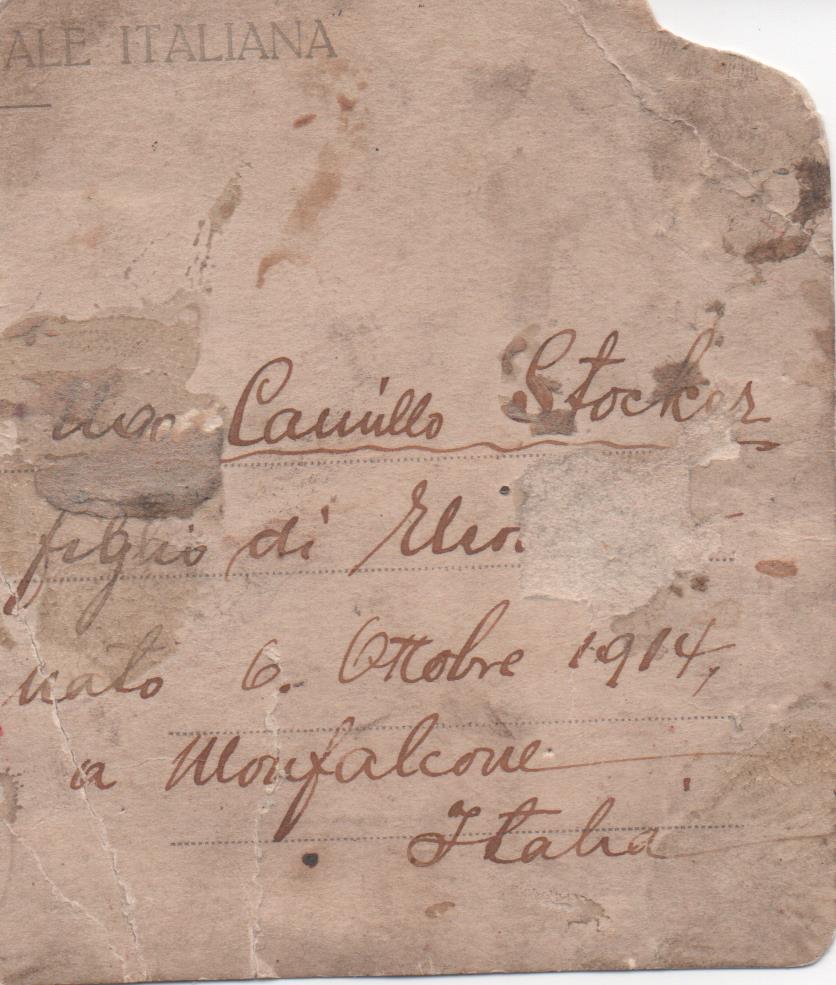 ALE ITALIANA
Camillo Stocker
figlio di
nato 6. Ottobre 1914,
a Monfalcone
Italia